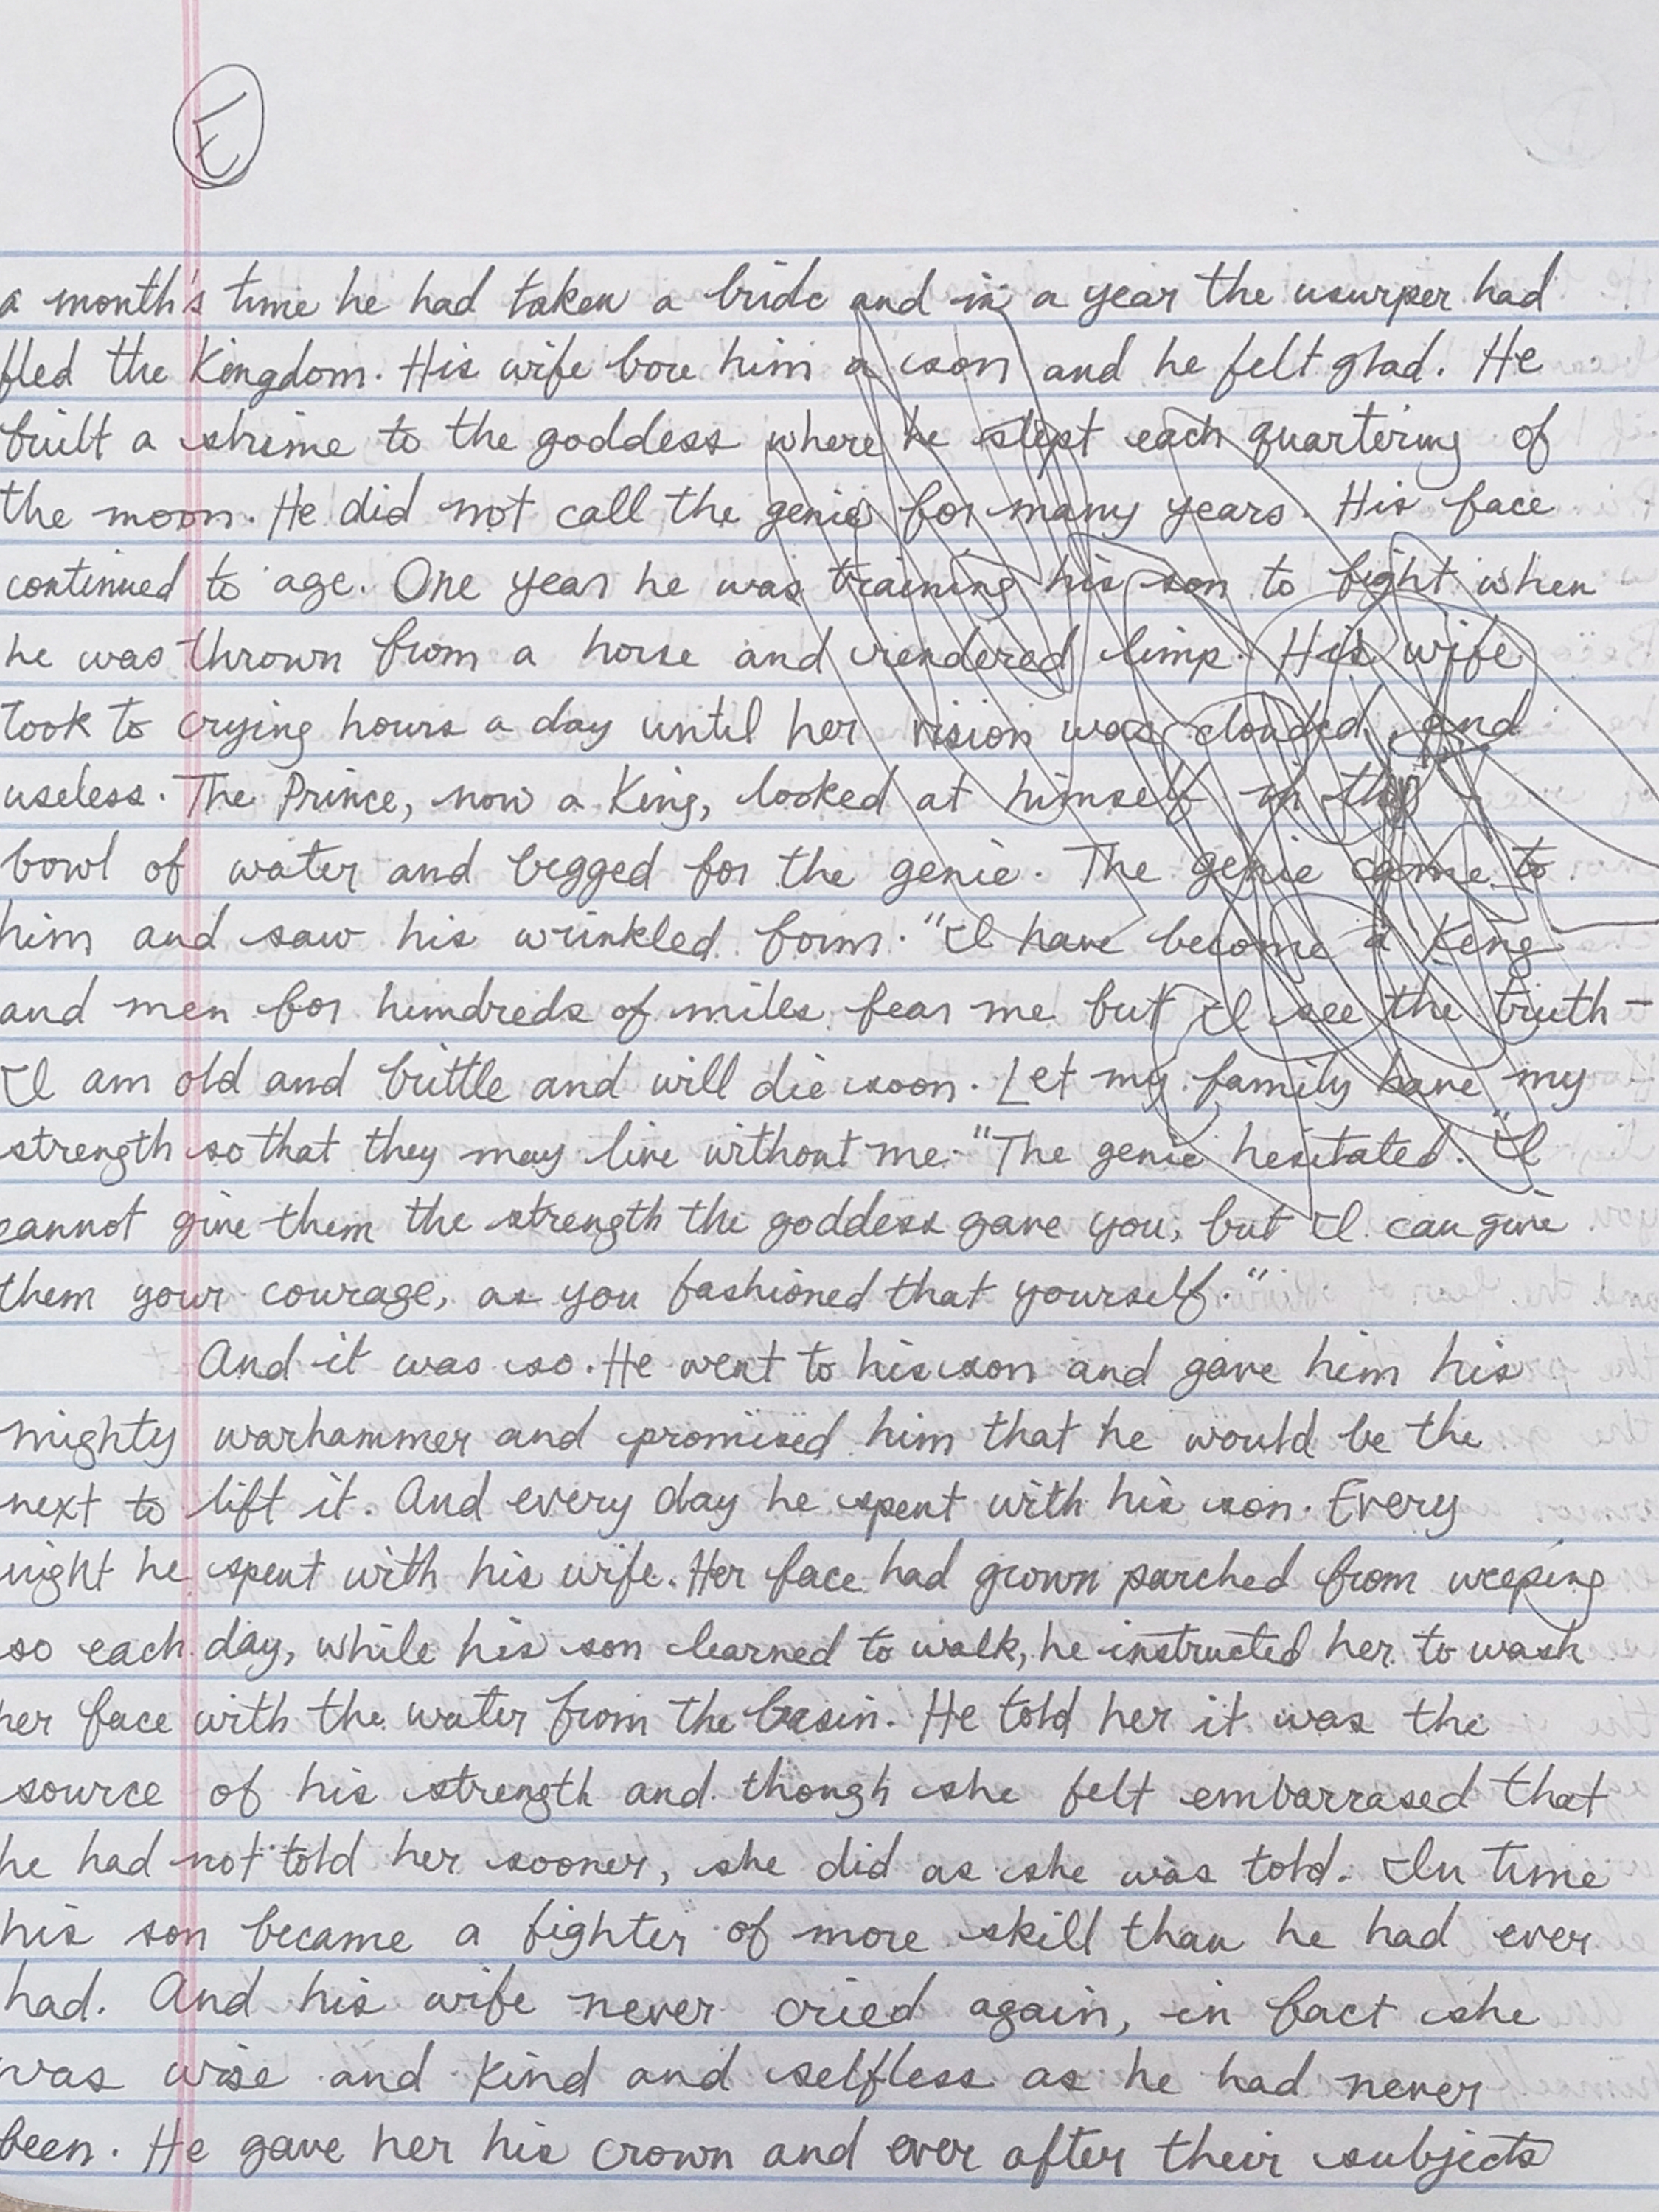 E
a month's time he had taken a bride and in a year the usurper had
fled the Kingdom. His wife bore him a son and he felt glad. He
built a shrine to the goddess where he slept each quartering of
the moon. He did not call the genie for many years. His face
continued to age. One year he was training his son to fight when
he was thrown from a horse and rendered limp. His wife
took to crying hours a day until her vision was clouded and
useless. The Prince, now a King, looked at himself in the
bowl of water and begged for the genie. The genie came to
him and saw his wrinkled form. "I have become a King
and men for hundreds of miles fear me but I see the truth –
I am old and brittle and will die soon. Let my family have my
strength so that they may live without me." The genie hesitated. "I
cannot give them the strength the goddess gave you, but I can give
them your courage, as you fashioned that yourself."
And it was so. He went to his son and gave him his
mighty warhammer and promised him that he would be the
next to lift it. And every day he spent with his son. Every
night he spent with his wife. Her face had grown parched from weeping
so each day, while his son learned to walk, he instructed her to wash
her face with the water from the basin. He told her it was the
source of his strength and though she felt embarrased that
he had not told her sooner, she did as she was told. In time
his son became a fighter of more skill than he had ever
had. And his wife never cried again, in fact she
was wise and kind and selfless as he had never
been. He gave her his crown and ever after their subjects